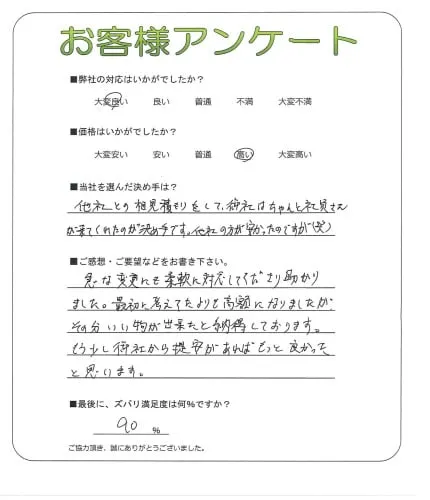 お客様アンケート
■弊社の対応はいかがでしたか？
大変良い 良い 普通 不満 大変不満
■価格はいかがでしたか？
大変安い 安い 普通 高い 大変高い
■当社を選んだ決め手は？
他社との相見積もりをして、御社はちゃんと社員さん
が来てくれたのが決め手です。他社の方が安かったのですが(笑)
■ご感想・ご要望などをお書き下さい。
急な変更にも柔軟に対応してくださり助かり
ました。最初に考えてたよりも高額になりましたが、
その分いい物が出来たと納得しております。
もう少し御社から提案があればもっと良かった
と思います。
■最後に、ズバリ満足度は何％ですか？
90 ％
ご協力頂き、誠にありがとうございました。